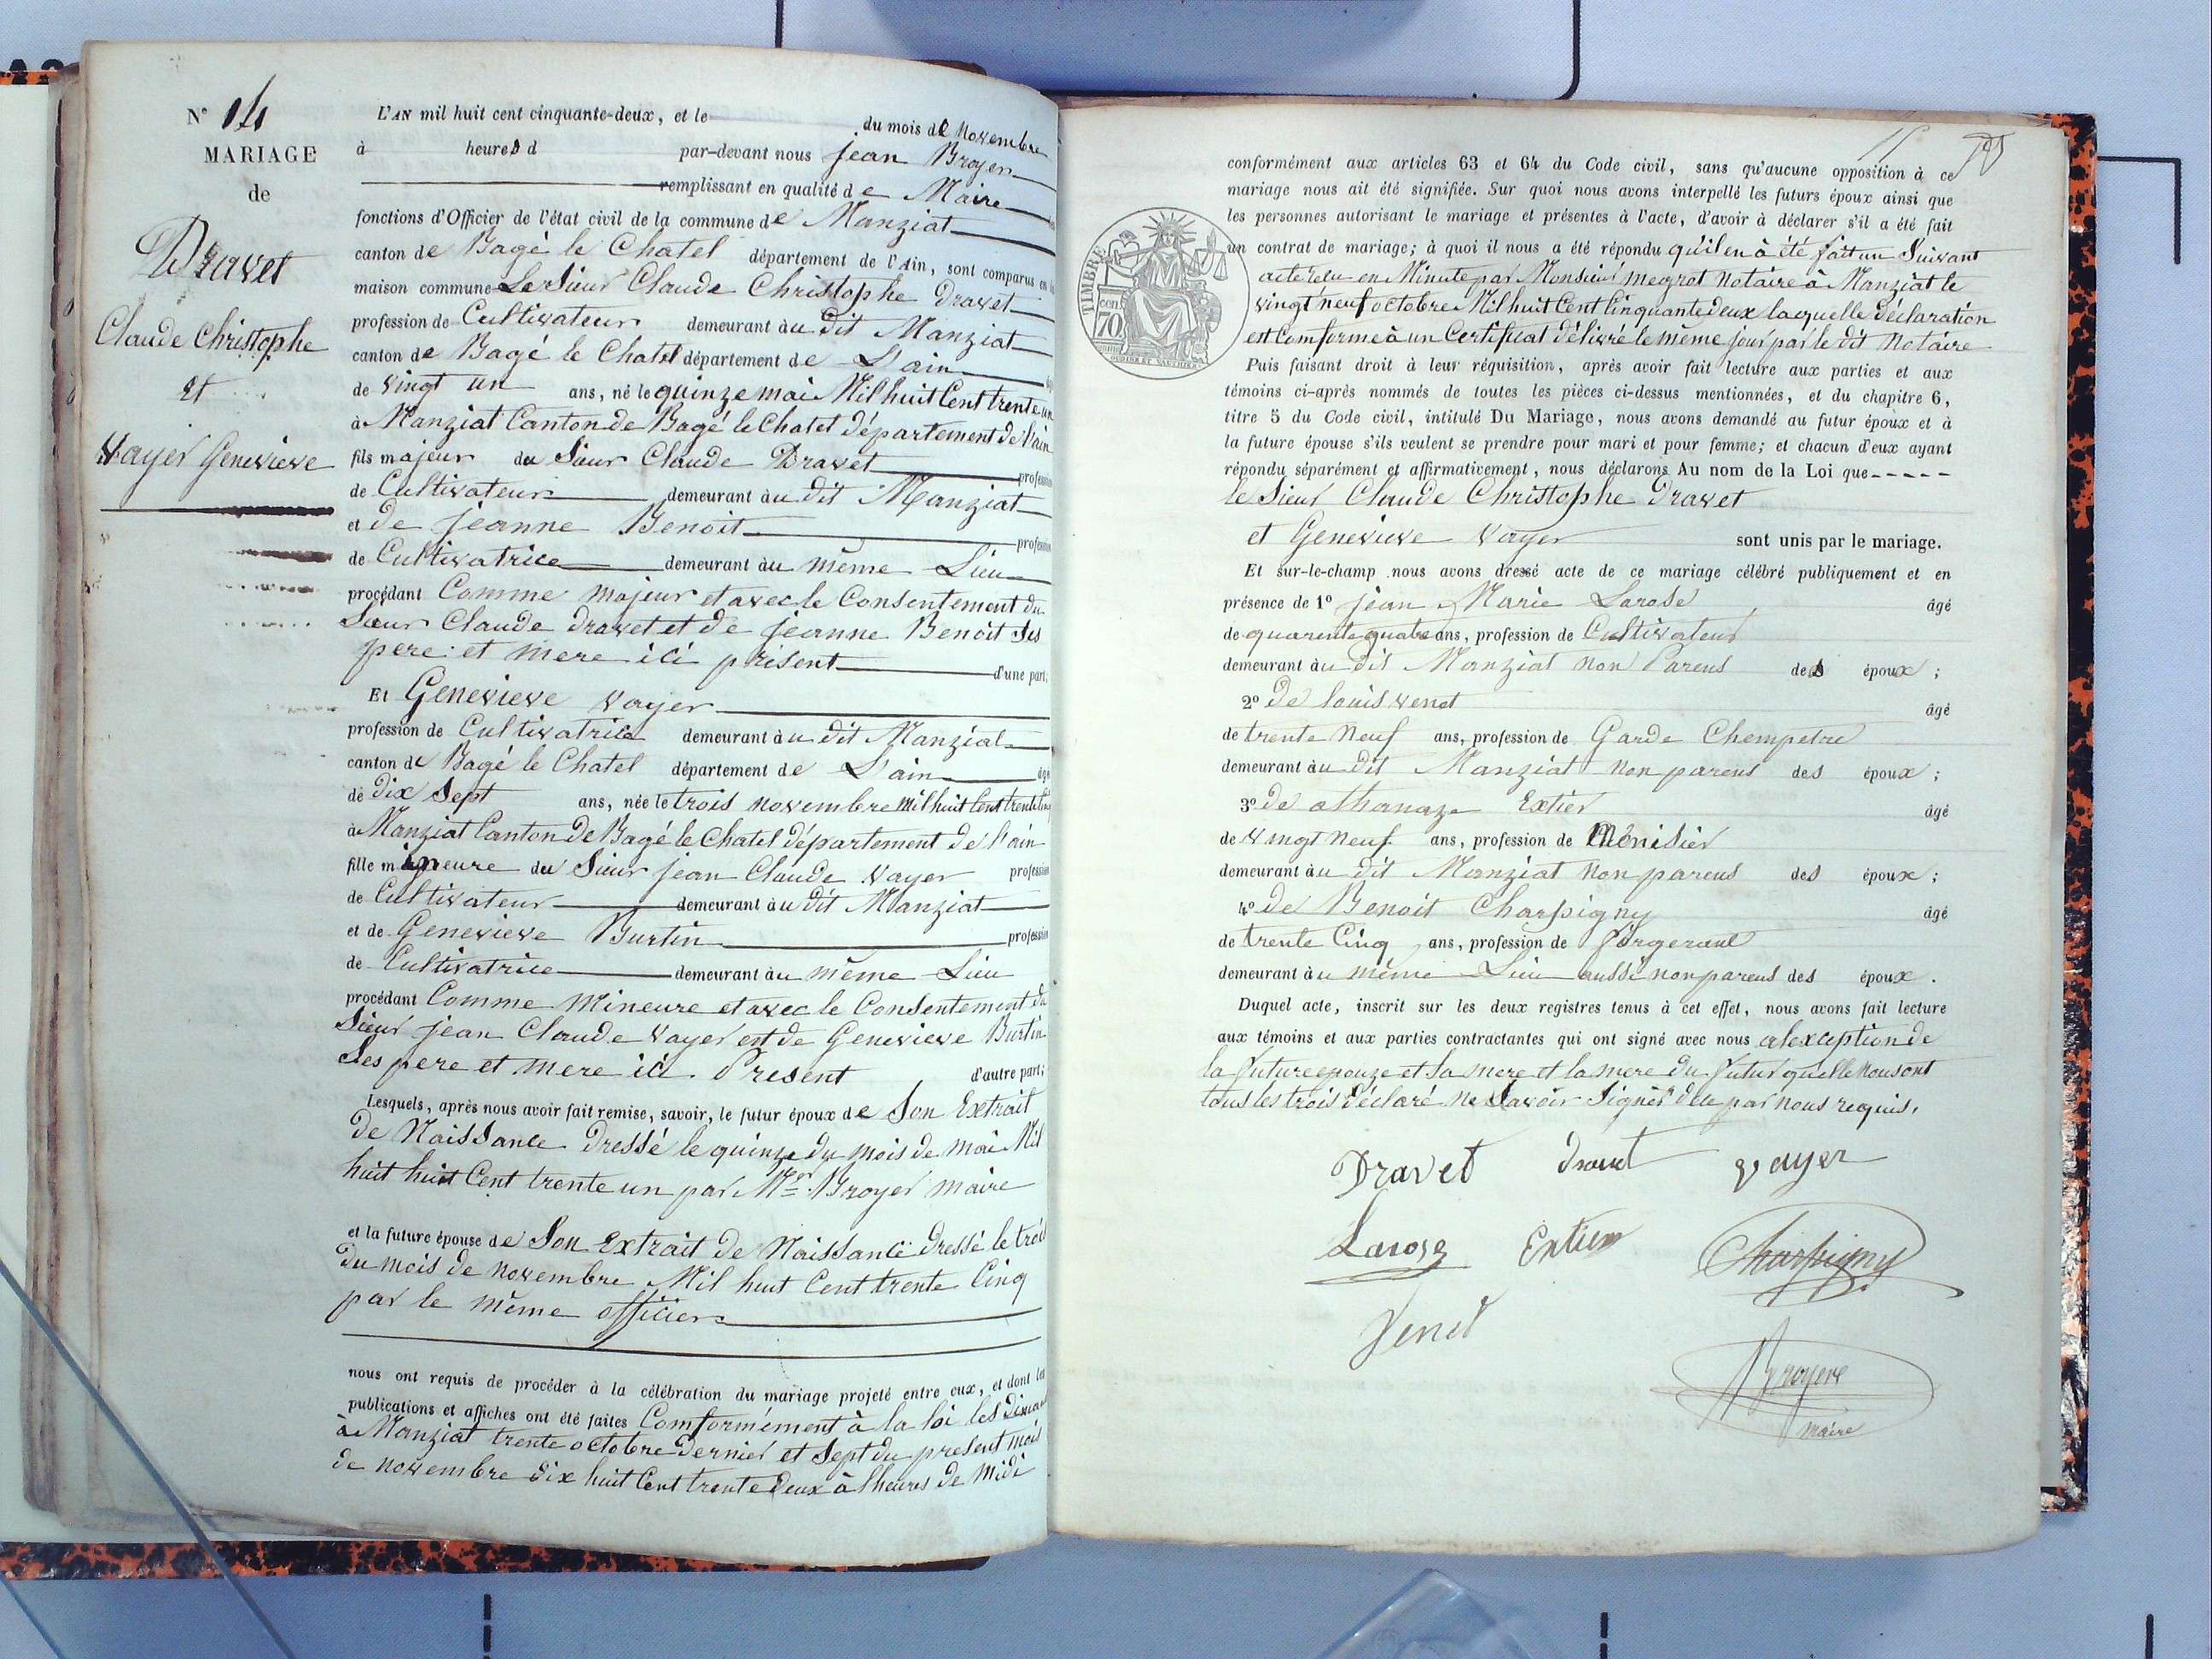 N° 14
MARIAGE
de
Dravet
Claude Christophe
et
Vayer Genevieve
L'AN mil huit cent cinquante-deux, et le du mois de Novembre
à heures d par-devant nous jean Broyer
remplissant en qualité de Maire
fonctions d'Officier de l'état civil de la commune de Manziat
canton de Bagé le Chatel département de l'Ain, sont comparus en la
maison commune Le Sieur Claude Christophe Dravet
profession de Cultivateur demeurant au Dit Manziat
canton de Bagé le Chatel département de L'ain
de vingt un ans, né le quinze mai Mil huit Cent trente un
à Manziat Canton de Bagé le Chatel département de l'ain
fils majeur du Sieur Claude Dravet profession
de Cultivateur demeurant au dit Manziat
et de jeanne Benoit profession
de Cultivatrice demeurant au même Lieu
procédant Comme majeur et avec le Consentement du
Sieur Claude Dravet et de jeanne Benoit Ses
pere et mere ici présent d'une part;
Et Genevieve Vayer
profession de Cultivatrice demeurant au dit Manziat
canton de Bagé le Chatel département de L'ain âgé
de dix Sept ans, née le trois novembre Mil huit Cent trente Cinq
à Manziat Canton de Bagé le Chatel département de l'ain
fille mineure du Sieur jean Claude Vayer profession
de Cultivateur demeurant au dit Manziat
et de Genevieve Burtin profession
de Cultivatrice demeurant au même Lieu
procédant Comme Mineure et avec le Consentement du
Sieur jean Claude Vayer et de Genevieve Burtin
Ses pere et mere ici Present d'autre part;
Lesquels, après nous avoir fait remise, savoir, le futur époux de Son Extrait
de Naissance dressé le quinze du mois de mai Mil
huit huit Cent trente un par Mr Broyer maire
et la future épouse de Son Extrait de Naissance dressé le trois
du mois de novembre Mil huit Cent trente Cinq
par le même officier
nous ont requis de procéder à la célébration du mariage projeté entre eux, et dont les
publications et affiches ont été faites Comformément à la loi les
à Manziat trente octobre dernier et Sept du present mois
de novembre dix huit Cent trente deux à l'heures de Midi
conformément aux articles 63 et 64 du Code civil, sans qu'aucune opposition à ce
mariage nous ait été signifiée. Sur quoi nous avons interpellé les futurs époux ainsi que
les personnes autorisant le mariage et présentes à l'acte, d'avoir à déclarer s'il a été fait
un contrat de mariage; à quoi il nous a été répondu qu'il en à été fait un Suivant
acte reçu en Minute par Monsieur megrot Notaire à Manziat le
vingt neuf octobre Mil huit Cent Cinquante deux laquelle déclaration
est Comforme à un Certificat délivré le même jour par le dit Notaire
TIMBRE
cen
70
Puis faisant droit à leur réquisition, après avoir fait lecture aux parties et aux
témoins ci-après nommés de toutes les pièces ci-dessus mentionnées, et du chapitre 6,
titre 5 du Code civil, intitulé Du Mariage, nous avons demandé au futur époux et à
la future épouse s'ils veulent se prendre pour mari et pour femme; et chacun d'eux ayant
répondu séparément et affirmativement, nous déclarons Au nom de la Loi que-----
le Sieur Claude Christophe Dravet
et Genevieve Vayer sont unis par le mariage.
Et sur-le-champ nous avons dressé acte de ce mariage célébré publiquement et en
présence de 1° jean Marie Larose âgé
de quarente quatre ans, profession de Cultivateur
demeurant au dit Manziat non Parens des époux;
2° de louis venet âgé
de trente Neuf ans, profession de Garde Chempetre
demeurant au dit Manziat non parens des époux;
3° de athanaze Extier âgé
de vingt Neuf ans, profession de Menisier
demeurant au dit Manziat Non parens des époux;
4° de Benoit Charpigny âgé
de trente Cinq ans, profession de forgeront
demeurant au même Lieu aussi non parens des époux.
Duquel acte, inscrit sur les deux registres tenus à cet effet, nous avons fait lecture
aux témoins et aux parties contractantes qui ont signé avec nous alexception de
la future epouze et Sa mere et la mere du futur qu'elle Nous ont
tous les trois déclaré ne Savoir Signer de ce par nous requis.
Dravet dravet vayer
Larose Extier Charpigny
Venet
Broyere
maire